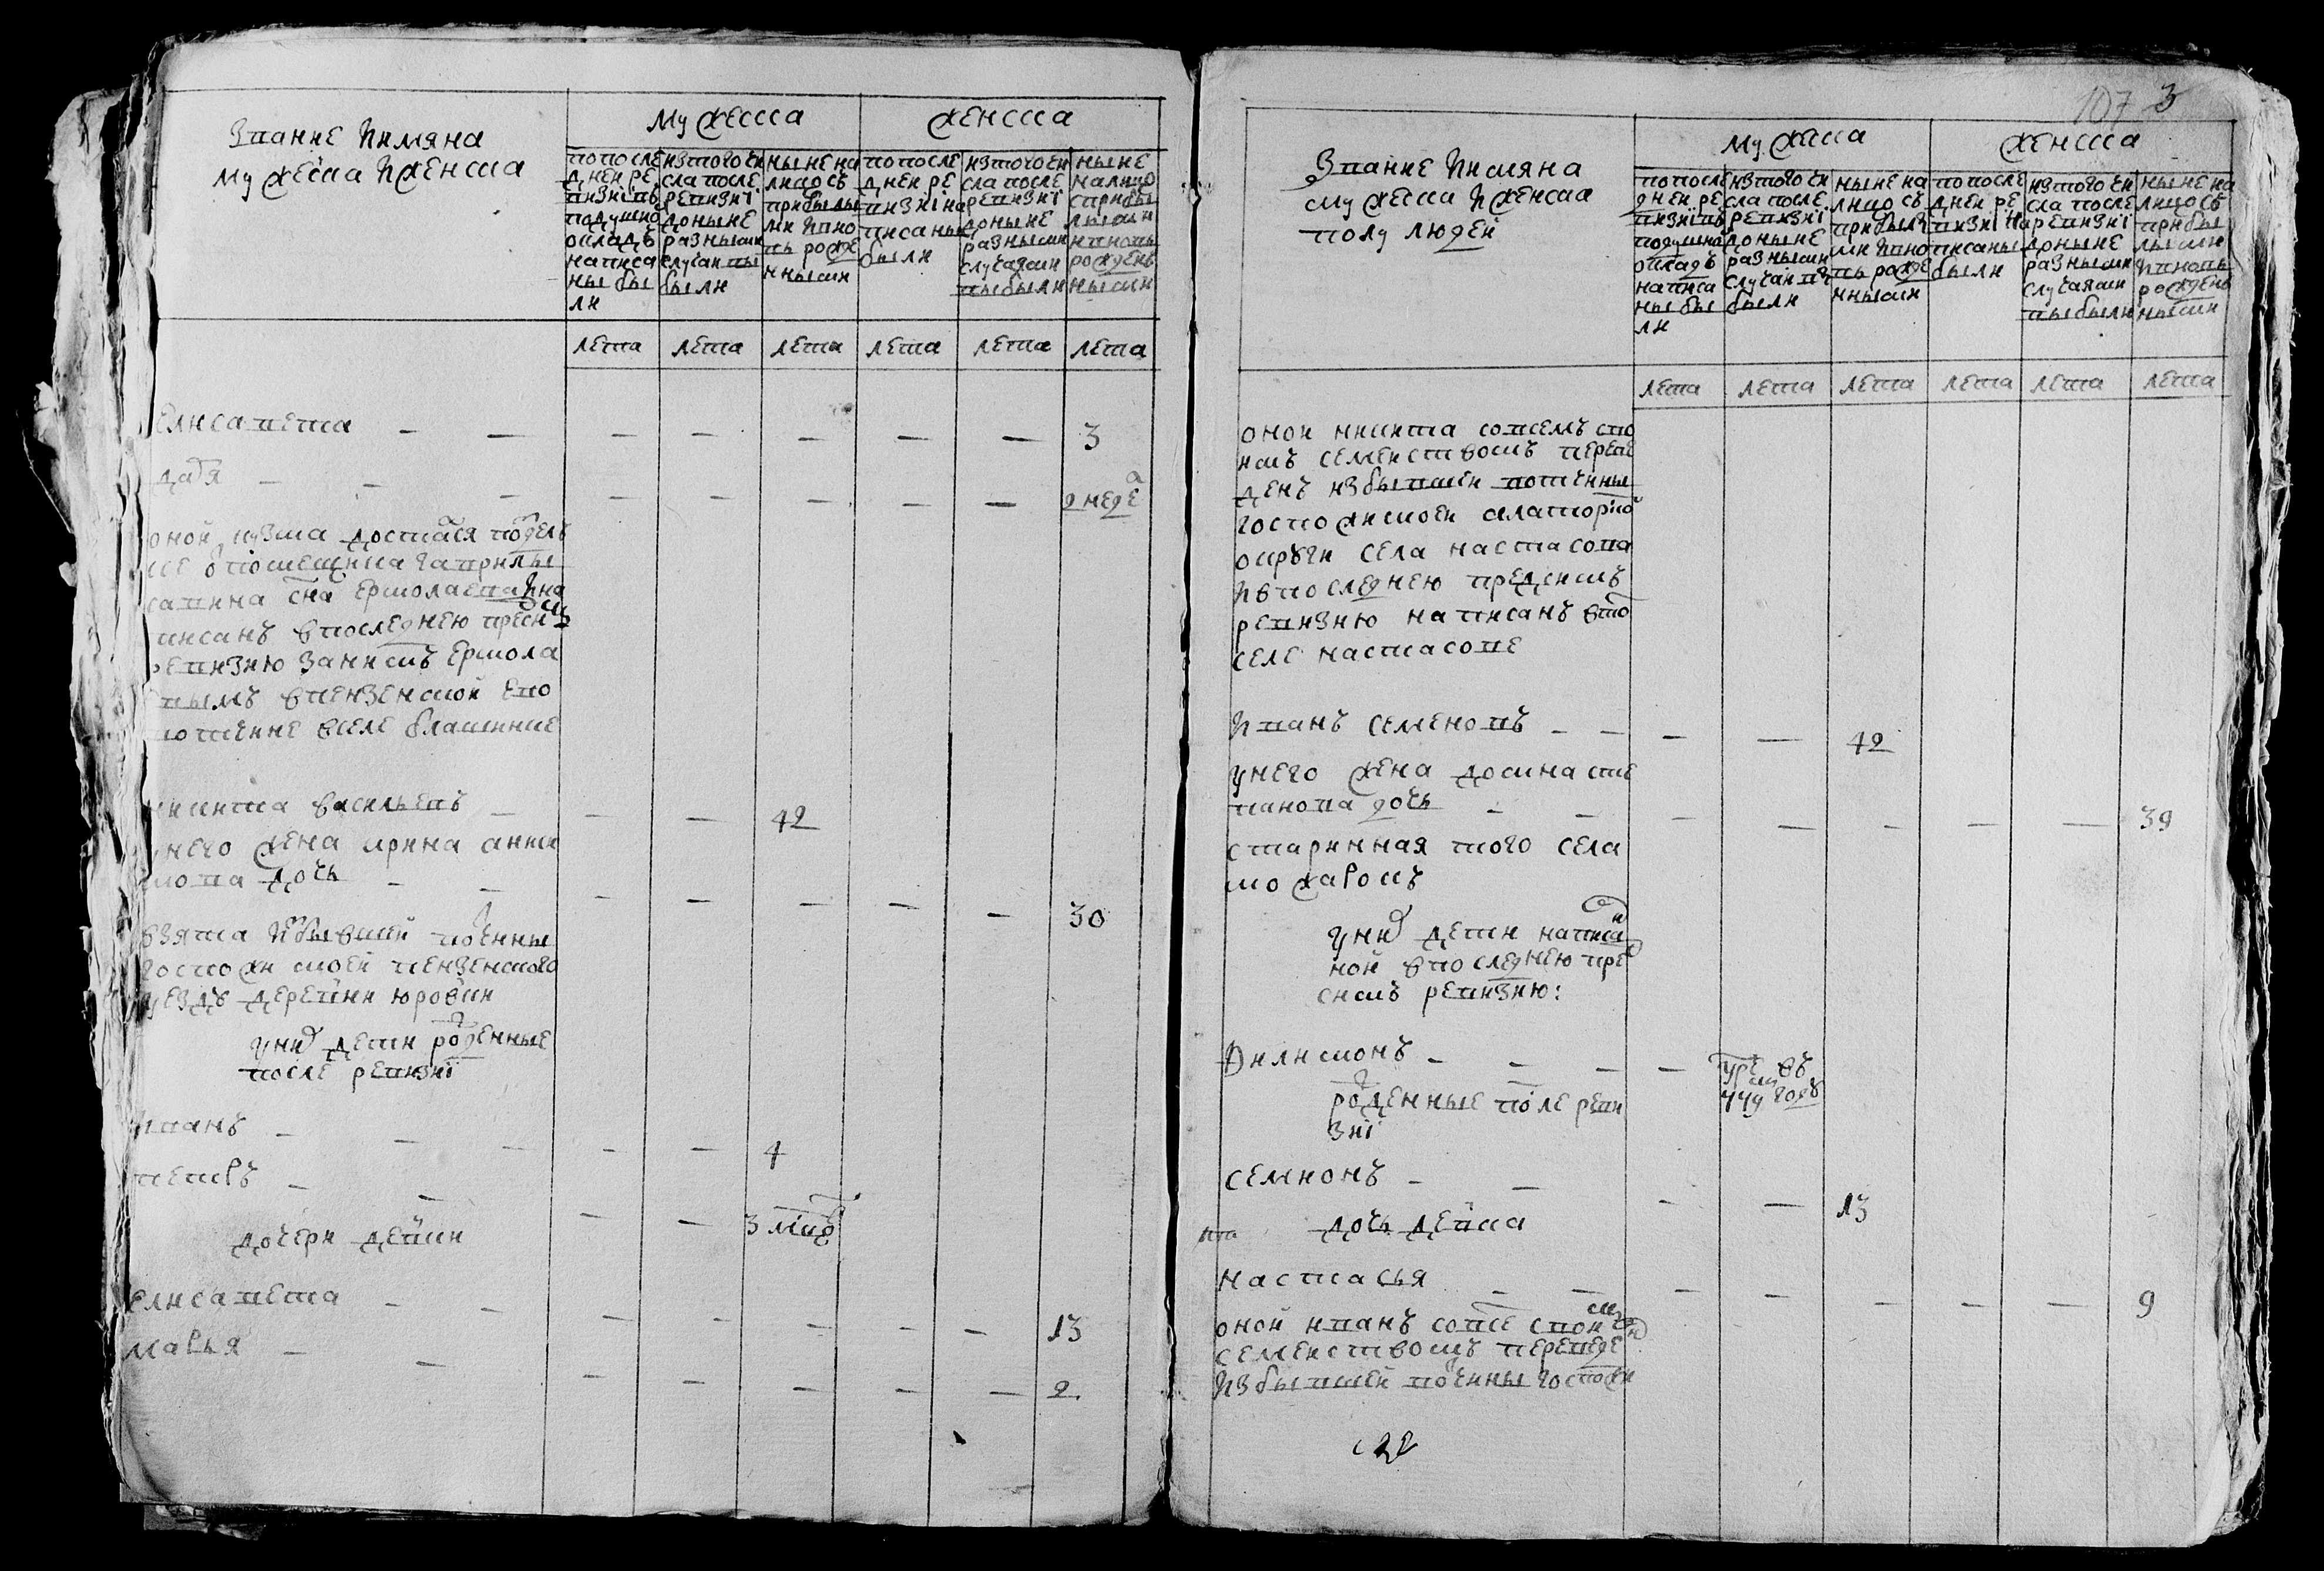 Звание Имяна
Мужеска Иженска
Мужеска
Женска
попосле
дней ре
визиіпъ
подушно
окладъ
написа
ны бы
ли
изтого чи
сла после
ревизиі
доныне
разными
случаи вы
были
ныне на
лицо съ
прибылы
ми ивно
въ рожде
нными
попосле
дней ре
визиі на
писаны
были
изтого чи
сла после
ревизиі
доныне
разными
случаями
выбыли
ныне
налицо
сприбы
лыми
ивновь
рожденъ
ными
лета лета лета лета лета лета
Елисавета — — — — — — — 3
дарья — — — — — — — — 2 неде
оной кузма достался
помещика гаврилы
савина сна Ермолаева Ина
писанъ впоследнею
ревизию занимъ Ермола
вымъ впензенской
вотчине вселе
никита васильевъ — — — 42
унего жена ирина
мова дочь — — — — — — — 30
взята Избывшей вочины
госпожи моей пензенского
уезда деревни юровки
уних дети рожденные
после ревизиі
Иванъ — — — — — 4
петръ — — — — 3 мец
дочери девки
Елисавета — — — — — — — 13
марья — — — — — — — 2
107 3
Звание Имяна
мужеска Иженска
полу людей
Мужеска
женска
попосле
дней ре
визиіпъ
подушно
окладъ
написа
ны бы
ли
изтого чи
сла после
ревизиі
доныне
разными
случаи вы
были
ныне на
лицо съ
прибылы
ми ивно
въ рожде
нными
попосле
дней ре
визиі на
писаны
были
изтого чи
сла после
ревизиі
доныне
разными
случаями
выбыли
ныне на
лицо съ
прибы
лыми
ивновь
рожденъ
ными
лета лета лета лета лета лета
оной никита совсемъ сво
имъ семействомъ переве
денъ избывшей вотчины
госпожи моей алаторской
округи села настасова
Ивпоследнею предсимъ
ревизию написанъ вто
селе настасове
Иванъ семеновъ — — — — 42
унего жена
панова дочь — — — — — — — 39
старинная того села
можаровъ
уних дети написа
ной впоследнею пре
симъ ревизию:
Филимонъ — — — — въ
годъ
рожденные после реви
зиі
семионъ — — — — 13
дочь девка
настасья — — — — — — — 9
оной иванъ совсе свои
семействомъ переведе
Избывшей вочины госпожи